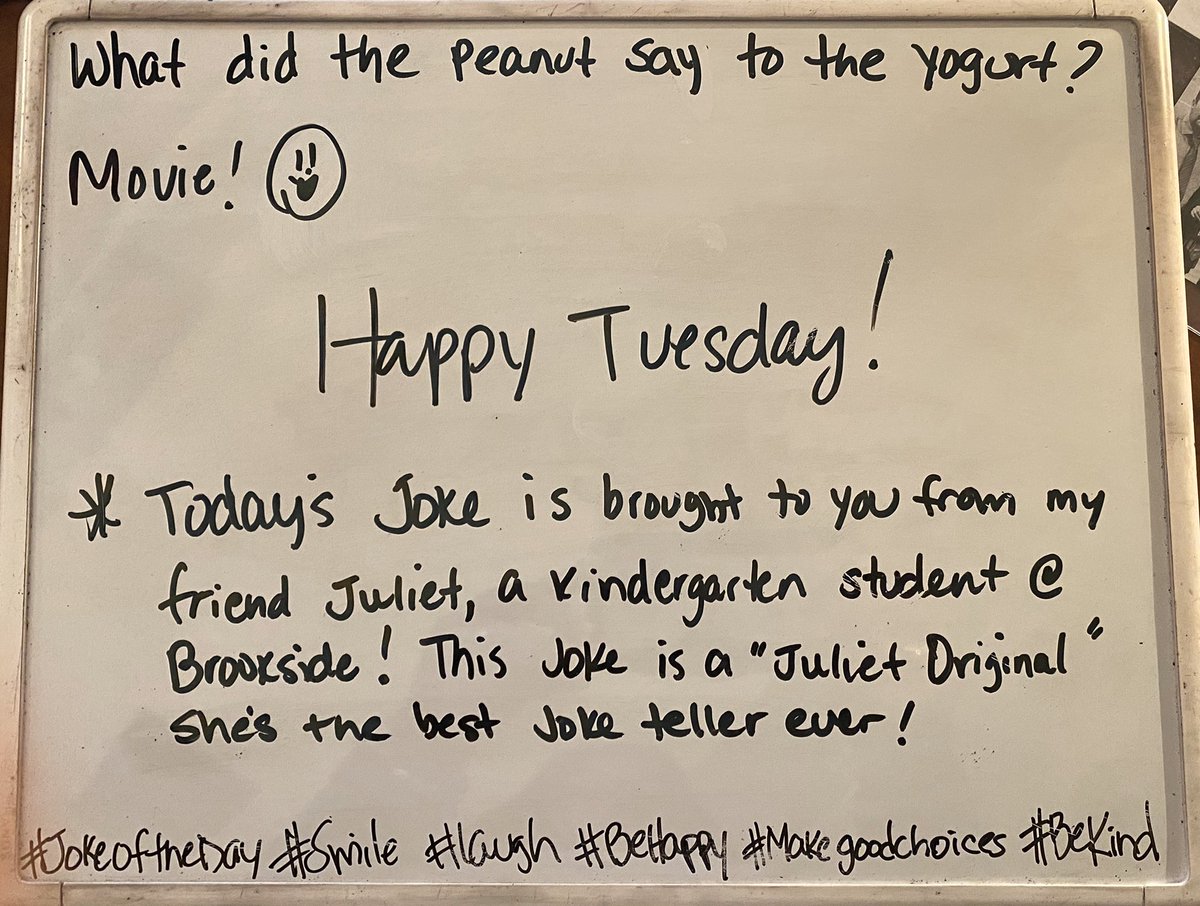 What did the peanut say to the yogurt?
Movie!
Happy Tuesday!
* Today's Joke is brought to you from my
friend Juliet, a kindergarten student @
Brookside! This Joke is a "Juliet Original"
she's the best Joke teller ever!
#JokeoftheDay #Smile #laugh #BeHappy #Makegoodchoices #BeKind